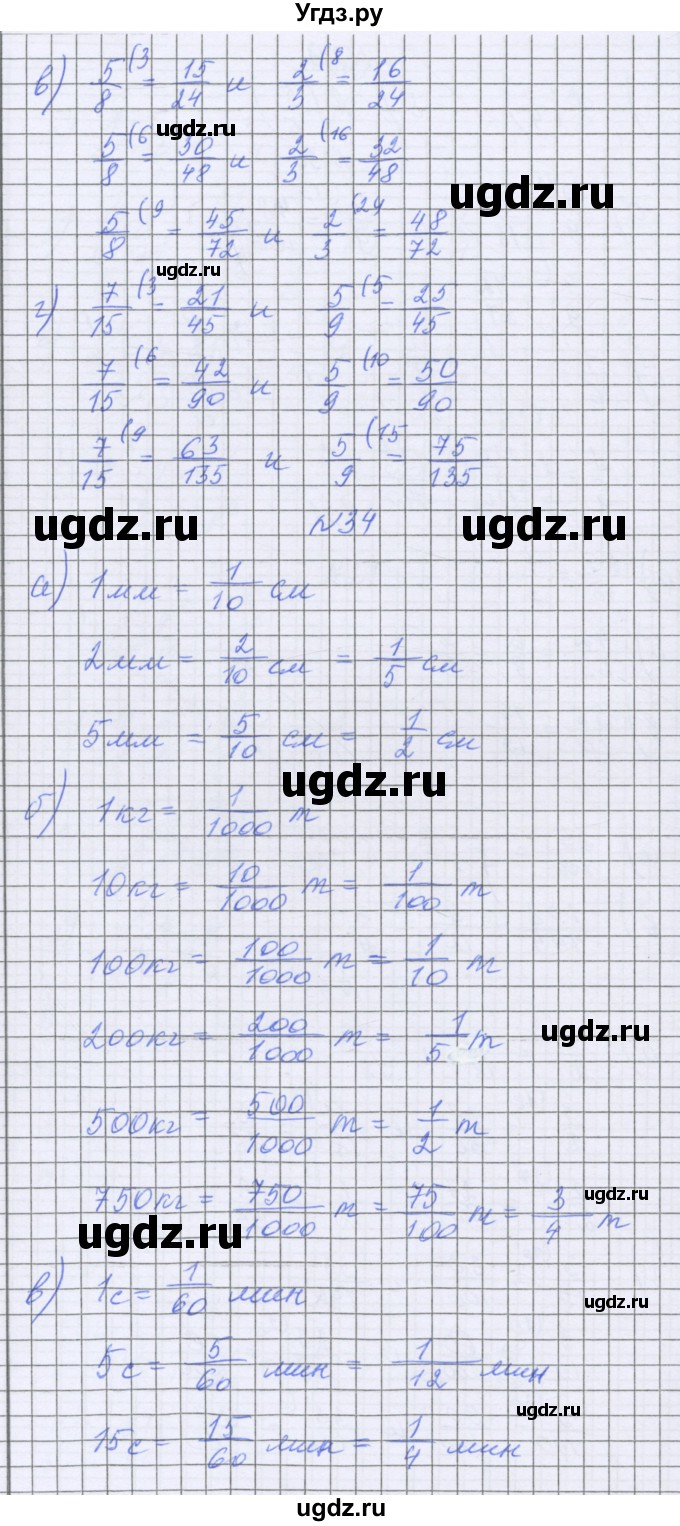 Угдз.ру
в) 5/8 (3 = 15/24 и 2/3 (8 = 16/24
ugdz.ru
5/8 (6 = 30/48 и 2/3 (16 = 32/48
ugdz.ru
5/8 (9 = 45/72 и 2/3 (24 = 48/72
ugdz.ru
г) 7/15 (3 = 21/45 и 5/9 (5 = 25/45
7/15 (6 = 42/90 и 5/9 (10 = 50/90
7/15 (9 = 63/135 и 5/9 (15 = 75/135
ugdz.ru №34 ugdz.ru
а) 1мм = 1/10 см
2мм = 2/10 см = 1/5 см
5мм = 5/10 см = 1/2 см
ugdz.ru
б) 1кг = 1/1000 т
10кг = 10/1000 т = 1/100 т
100кг = 100/1000 т = 1/10 т
200кг = 200/1000 т = 1/5 т
ugdz.ru
500кг = 500/1000 т = 1/2 т
750кг = 750/1000 т = 75/100 т = 3/4 т
ugdz.ru
ugdz.ru
в) 1с = 1/60 мин
ugdz.ru
5с = 5/60 мин = 1/12 мин
ugdz.ru
15с = 15/60 мин = 1/4 мин
ugdz.ru